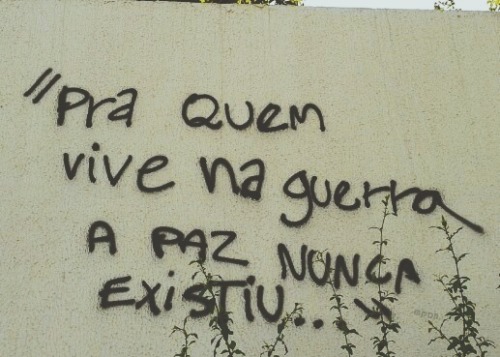 "Pra Quem
vive na guerra
A PAZ NUNCA
EXisTiU..."